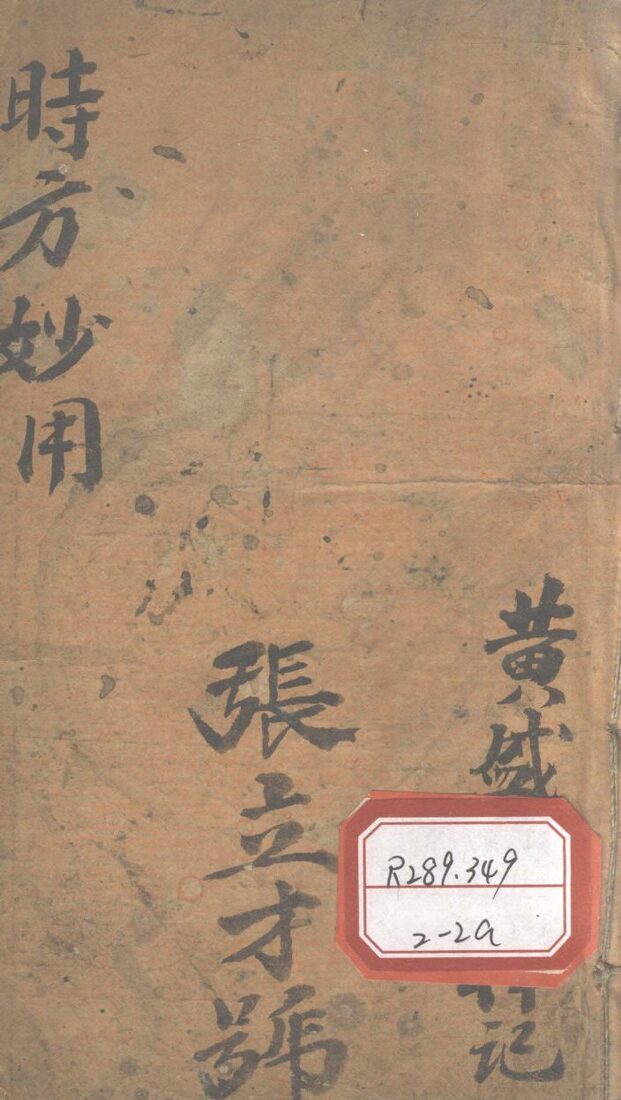 黄盛
記
張立才號
時方妙用
R289.349
2-2a